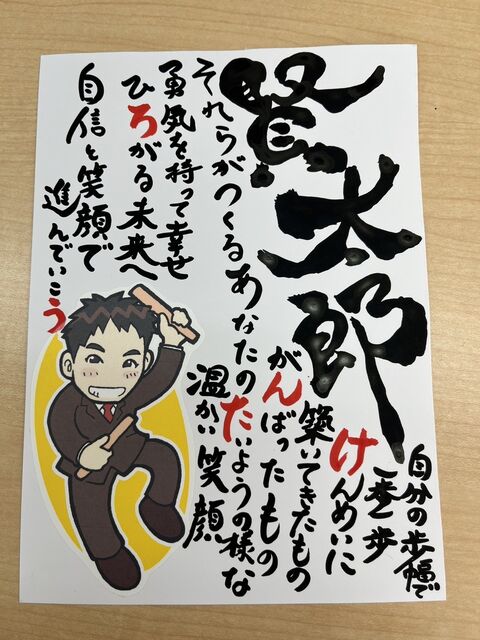 賢太郎
自分の歩幅で
一歩一歩
けんめいに
築いてきたもの
がんばったもの
それらがつくるあなたのたいようの様な
温かい笑顔
勇気を持って幸せ
ひろがる未来へ
自信と笑顔で
進んでいこう